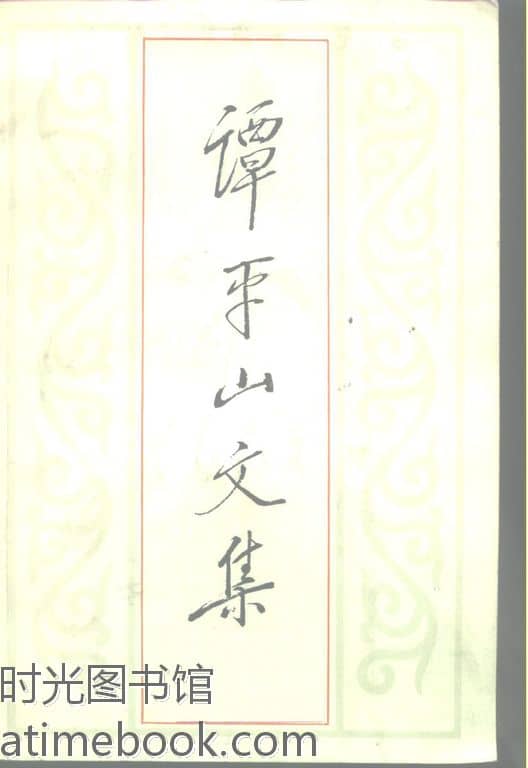 谭平山文集
时光图书馆
atimebook.com